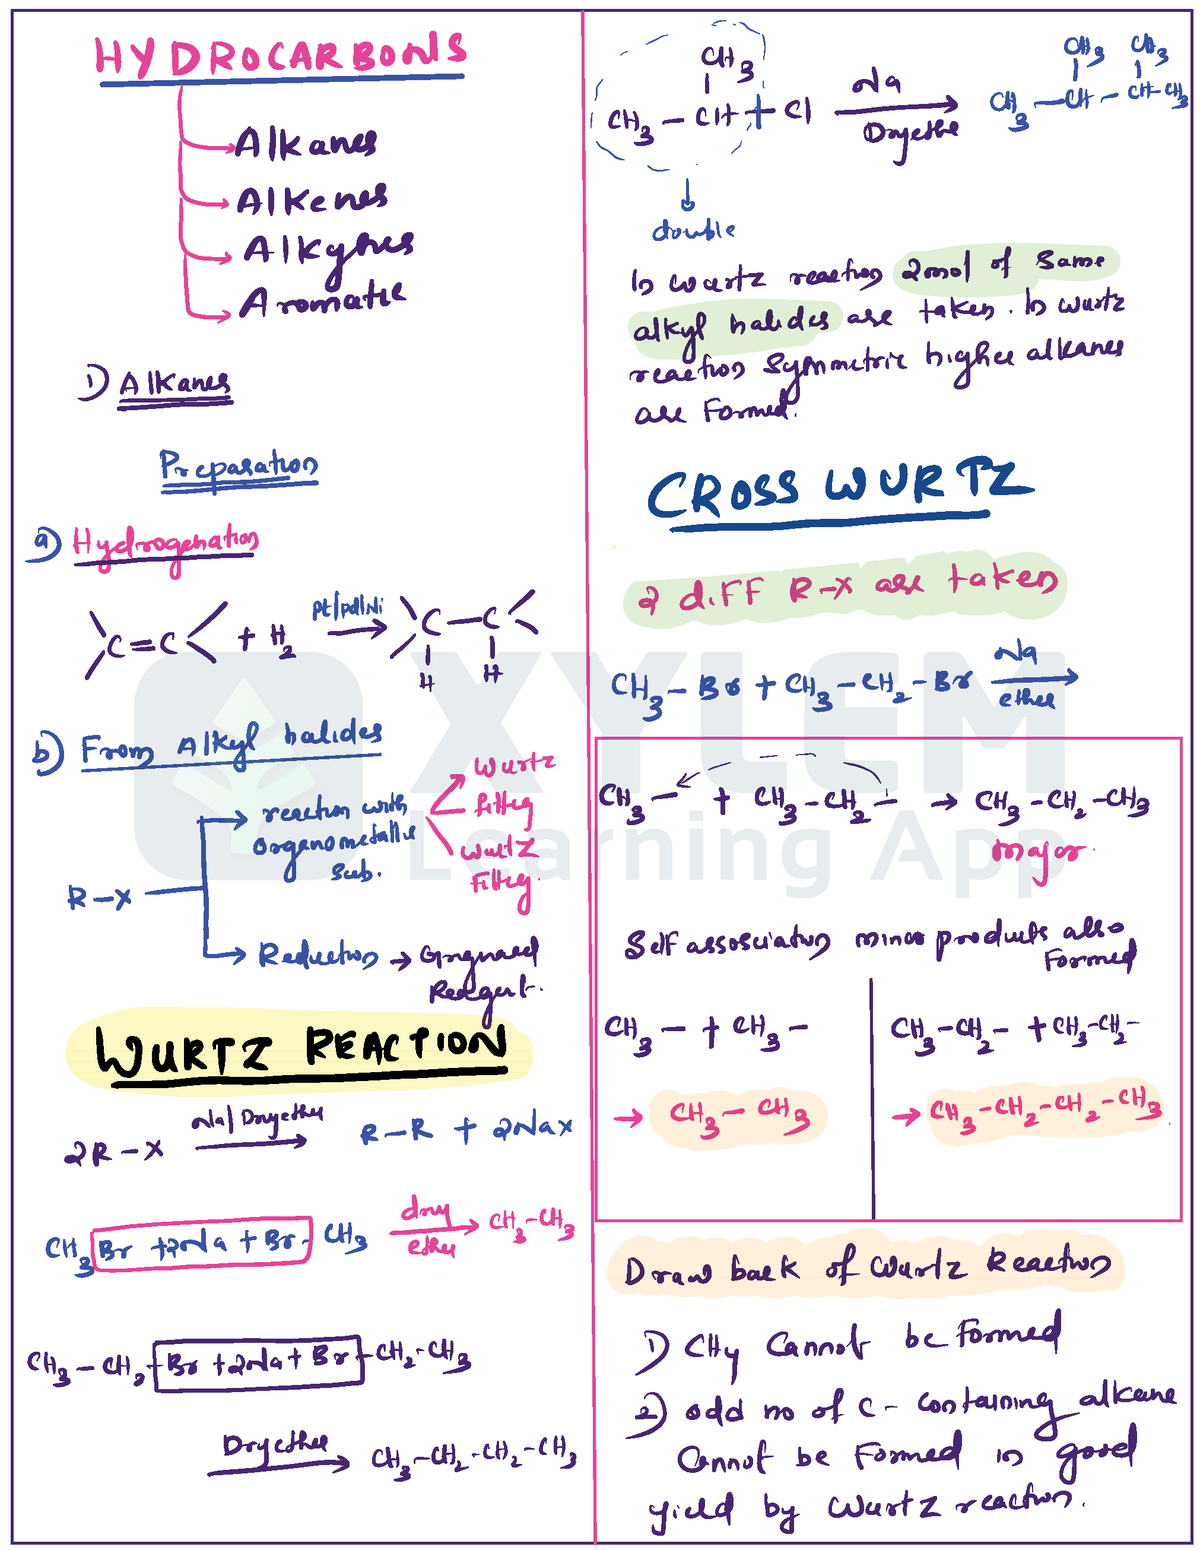 HYDROCARBONS
Alkanes
Alkenes
Alkynes
Aromatic
1) Alkanes
Preparation
a) Hydrogenation
C=C + H2 Pt/pd/Ni C-C
H H
b) From Alkyl halides
reaction with
organometallic
sub.
Wurtz
fitteg
wurtz
Fitteg.
R-X
Reduction → Gngnared
Reagent.
WURTZ REACTION
2R-X Na/Dryether R-R + 2Nax
CH3 Br + 2Na + Br - CH3 dry ether CH3-CH3
CH3-CH2-Br + 2Na + Br-CH2-CH3
Dryether CH3-CH2-CH2-CH3
CH3
CH3-CH+Cl Na Dryethe
CH3 CH3
CH3-CH-CH-CH3
double
In wurtz reaction 2mol of same
alkyl halides are taken. In wurtz
reaction symmetric higher alkanes
are formed.
CROSS WURTZ
2 diff R-X are taken
CH3-Br + CH3-CH2-Br Na ether
CH3- + CH3-CH2- → CH3-CH2-CH3
major.
Self association minor products also
formed
CH3- + CH3-
→ CH3-CH3
CH3-CH2- + CH3-CH2-
→ CH3-CH2-CH2-CH3
Draw back of Wurtz Reaction
1) CH4 Cannot be formed
2) odd no of C- containing alkane
Cannot be formed in good
yield by wurtz reaction.
XYLEM
Learning App